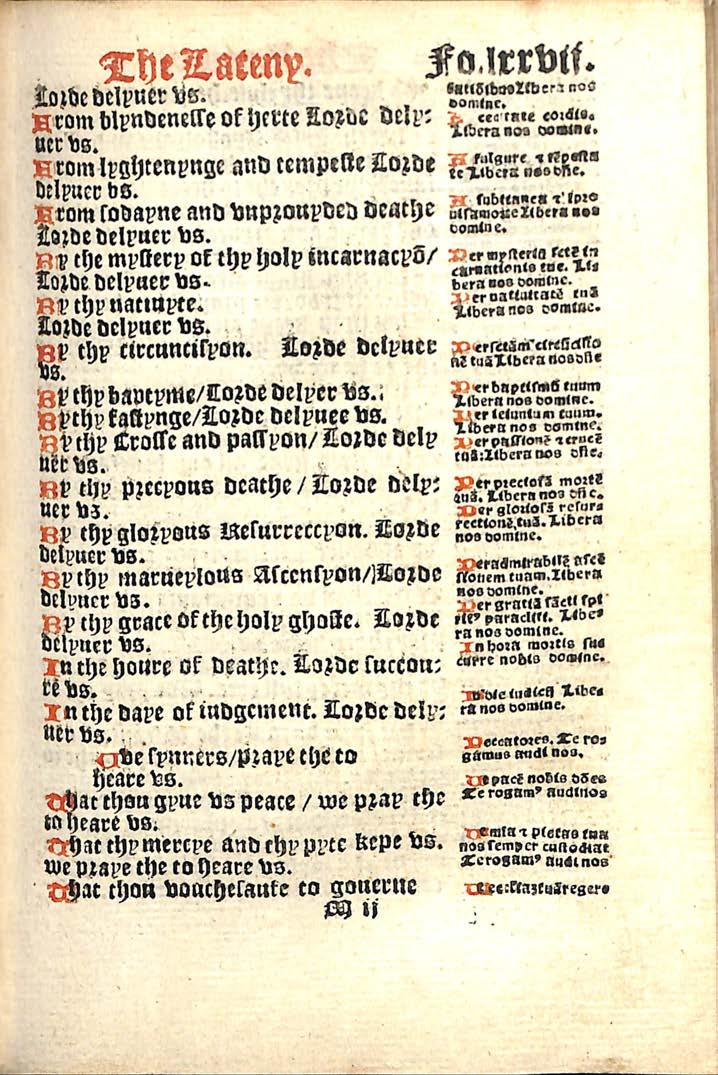 The Lateny.
Fo.lxxvii.
Lorde delyuer vs.
From blyndenesse of herte Lorde dely:
uer vs.
From lyghtenynge and tempeste Lorde
delyuer vs.
From sodayne and vnprouyded deathe
Lorde delyuer vs.
By the mystery of thy holy incarnacyō/
Lorde delyuer vs.
By thy natiuyte.
Lorde delyuer vs.
By thy circuncisyon. Lorde delyuer
vs.
By thy baptyme/Lorde delyer vs.
By thy fastynge/Lorde delyuee vs.
By thy Crosse and passyon/ Lorde dely
uer vs.
By thy precyous deathe / Lorde dely:
uer vs.
By thy gloryous Resurreccyon. Lorde
delyuer vs.
By thy marueylous Ascensyon/Lorde
delyuer vs.
By thy grace of the holy ghoste. Lorde
delyuer vs.
In the houre of deathe. Lorde succou:
re vs.
In the daye of iudgement. Lorde dely:
uer vs.
We synners/praye the to
heare vs.
That thou gyue vs peace / we pray the
to heare vs.
That thy mercye and thy pyte kepe vs.
we praye the to heare vs.
That thou vouchesaufe to gouerne
M ij
tatiōibus Libera nos
domine.
A cecitate cordis.
Libera nos domine.
A fulgure ⁊ tēpesta
te Libera nos dñe.
A subitanea ⁊ impro
uisa morte Libera nos
domine.
Per mysteriū sctē in
carnationis tue. Li
bera nos domine.
Per natiuitatē tuā
Libera nos domine.
Per sctām circūcisio
nē tuā Libera nos dñe
Per baptismū tuum
Libera nos domine.
Per ieiunium tuum.
Libera nos domine.
Per passionē ⁊ crucē
tuā: Libera nos dñe.
Per preciosā mortē
tuā. Libera nos dñe.
Per gloriosā resurs
rectionē tuā. Libera
nos domine.
Per admirabilē ascē
sionem tuam. Libera
nos domine.
Per gratiā sācti spi
ritꝰ paracliti. Libe
ra nos domine.
In hora mortis suc
curre nobis domine.
In die iudicij Libe
ra nos domine.
Peccatores. Te ro
gamus audi nos.
Ut pacē nobis dōes
Te rogamꝰ audi nos
Ut mīa ⁊ pietas tua
nos semper custodiat
Te rogamꝰ audi nos
Ut eccliaz tuā regere